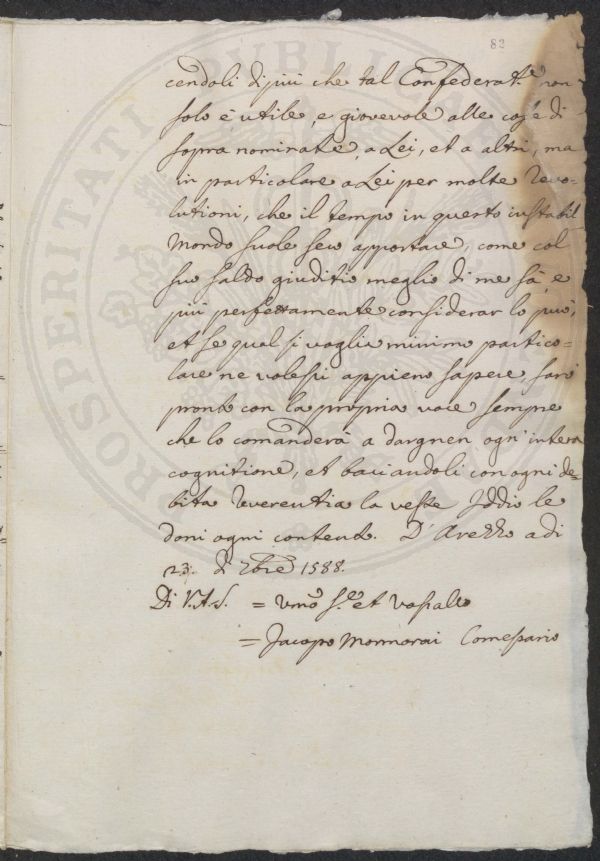 82
cendoli di più che tal Confederat.e non
solo è utile, e giovevole alle cose di
sopra nominate, a Lei, et a altri, ma
in particolare a Lei per molte Revo-
lutioni, che il tempo in questo instabil
Mondo suole seco apportare, come col
suo saldo giuditio meglio di me sà, e
più perfettamente considerar lo può,
et se qual si voglia minimo partico-
lare ne volessi appieno sapere, sarò
pronto con la propria voce sempre
che lo comanderà a dargnen ogn' intera
cognitione, et baciandoli con ogni de-
bita Reverentia la veste Iddio le
doni ogni contento. D'Arezzo adi
23. di Xbre 1588.
Di V.A.S. = Vmo S.re et Vassallo
= Jacopo Monmorai
PROSPERITATI PUBLICAE